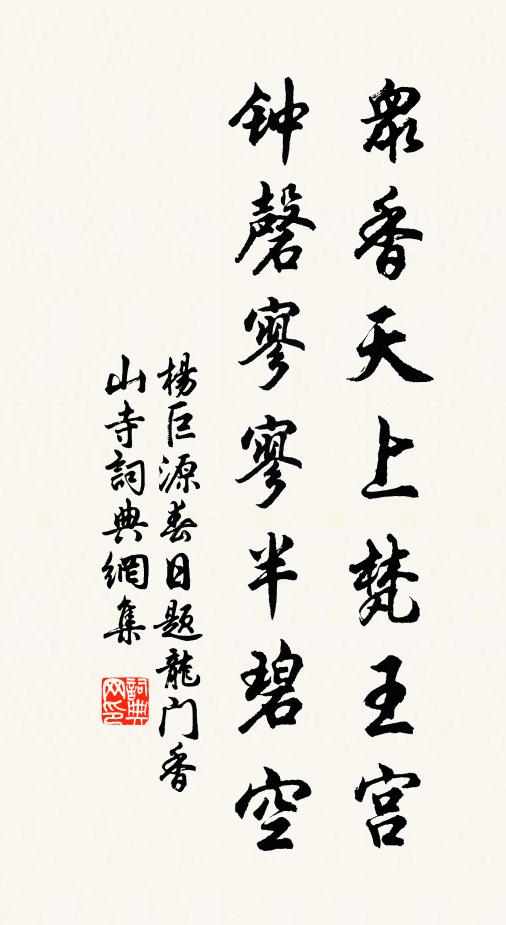 眾香天上梵王宮
钟磬寥寥半碧空
楊巨源春日题龍门香
山寺詞典網集
詞典网印